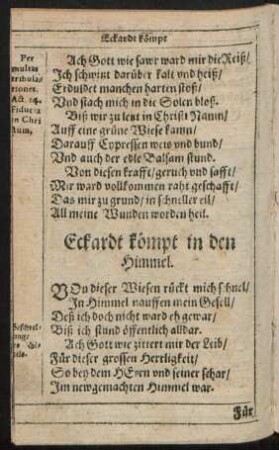 Eckardt kömpt
Per
multas
tribula-
tiones.
Act. 14.
Fiducia
in Chri
stum.
Ach Gott wie sawr ward mir die Reiß/
Ich schwitzt darüber kalt vnd heiß/
Erduldet manchen harten stoß/
Vnd stach mich in die Solen bloß.
Biß wir zu letzt in Christi Namn/
Auff eine grüne Wiese kamn/
Darauff Cypressen weis vnd bund/
Vnd auch der edle Balsam stund.
Von diesen krafft/ geruch vnd safft/
Mir ward vollkommen raht geschafft/
Das mir zu grund/ in schneller eil/
All meine Wunden worden heil.
Eckardt kömpt in den
Himmel.
VOn dieser Wiesen rückt mich schnel/
In Himmel nauffen mein Gesell/
Deß ich doch nicht ward eh gewar/
Biß ich stund öffentlich alldar.
Ach Gott wie zittert mir der Leib/
Für dieser grossen Herrligkeit/
So bey dem HErrn vnd seiner schar/
Im newgemachten Himmel war.
Für